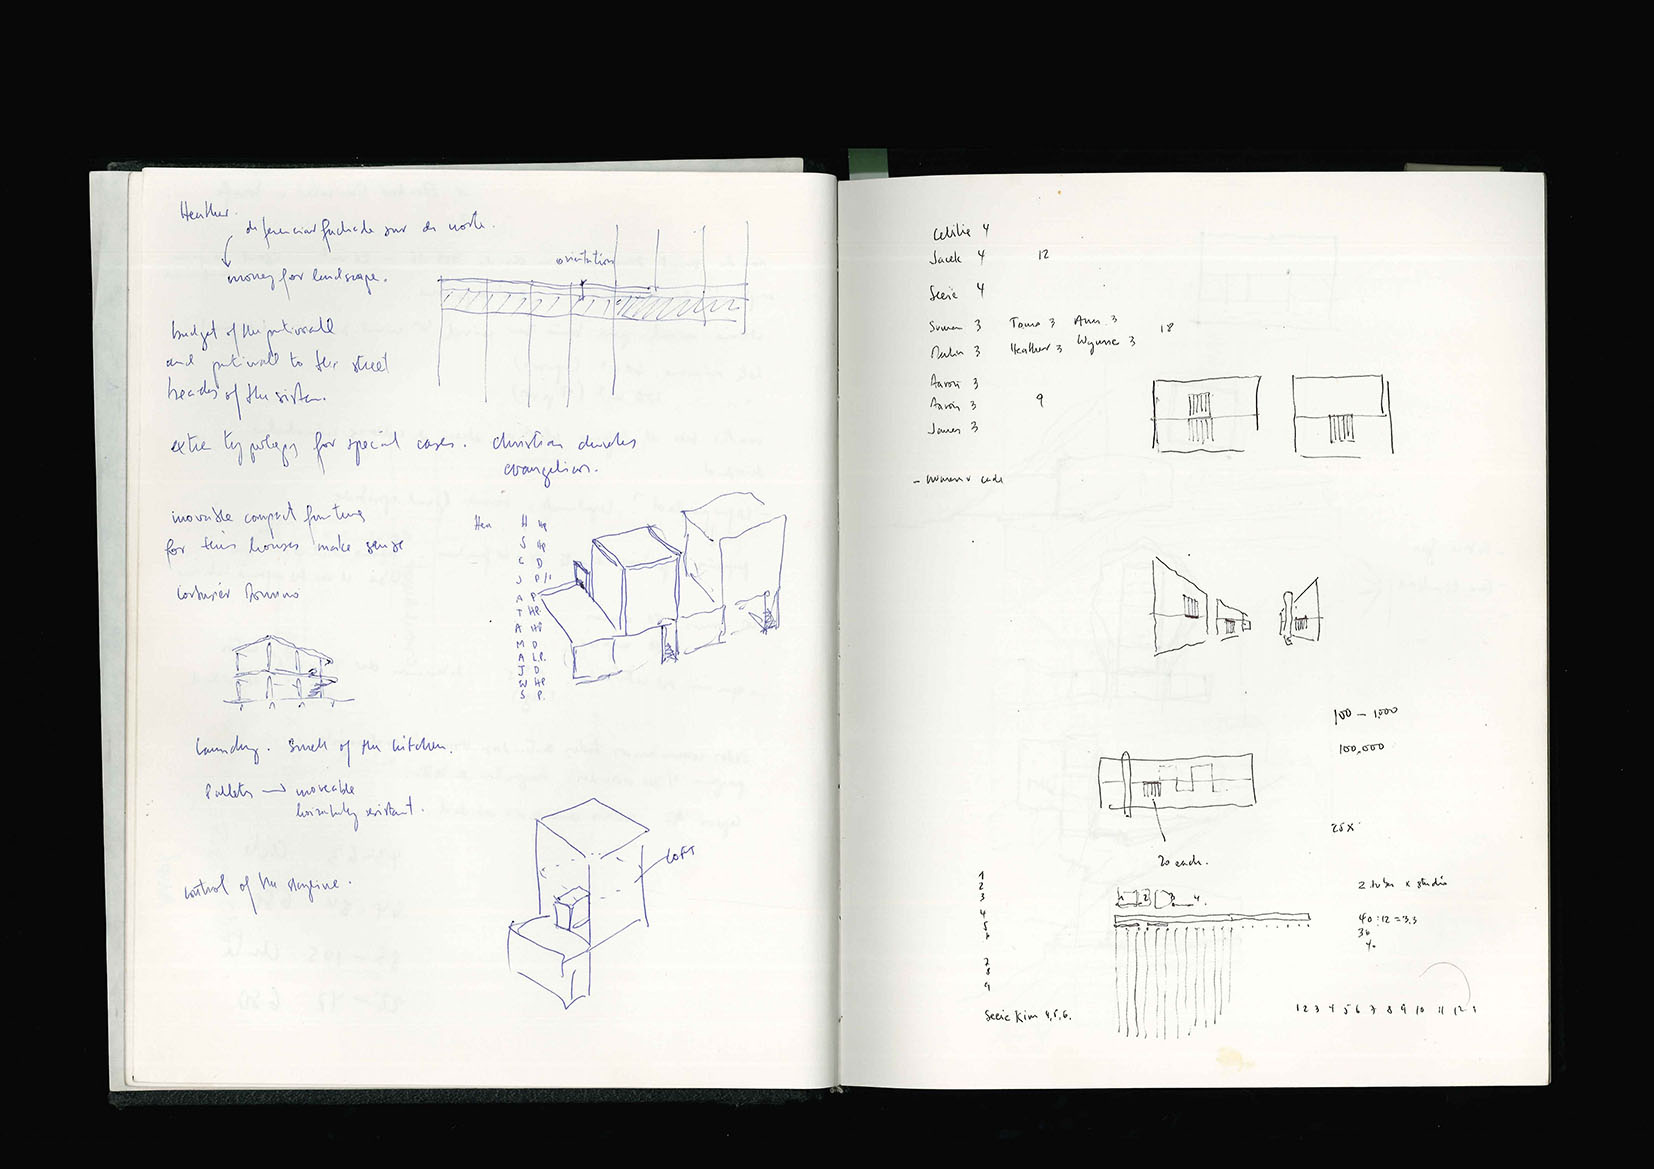 Heather.
diferenciar fachada sur de norte.
money for landscape.
orientation
budget of the patiowall
and patiowall to the street
header of the sistem.
extra typology for special cases. christian churches
evangelicos.
movable compact furniture
for this houses make sense
Corbusier Domino
Hea H HP
S HP
C D
J P/1
A P
T HP.
A HP
M D
A L.P.
J D
W HP
S P.
Laundry. Smell of the kitchen.
Pallets → moveable
horizontally resistant.
LOFT
control of the skyline.
Cecilie 4
Jacek 4 12
Seeie 4
Suman 3 Tamo 3 Ann 3
18
Martin 3 Heather 3 Wynne 3
Aaron 3
Aaron 3 9
James 3
100 - 1,000
100,000
25x
20 each.
1
2
3
4
5
1 2 3 4.
2 tubes x studio
40:12 = 3.3
36
4.
7
8
9
Seeie Kim 4,5,6.
1 2 3 4 5 6 7 8 9 10 11 12 1